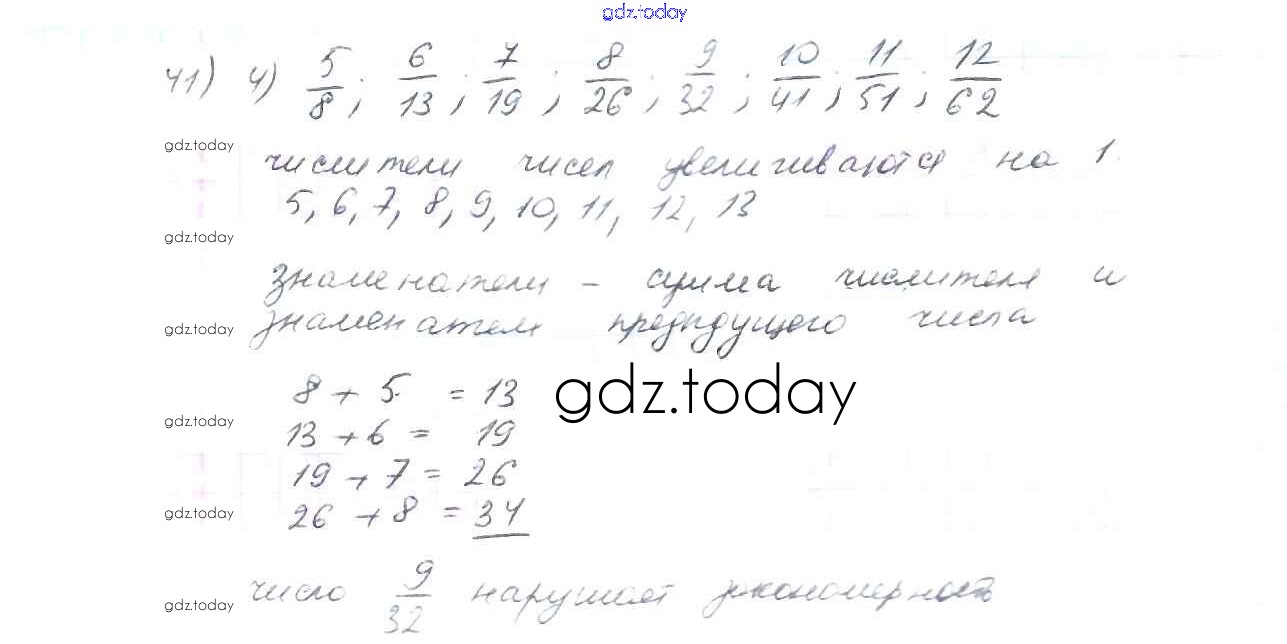 gdz.today
41) 4) 5/8; 6/13; 7/19; 8/26; 9/32; 10/41; 11/51; 12/62
gdz.today
числители чисел увеличиваются на 1.
5, 6, 7, 8, 9, 10, 11, 12, 13
gdz.today
знаменатели - сумма числителя и
gdz.today
знаменателя предыдущего числа
8 + 5 = 13
gdz.today
gdz.today
13 + 6 = 19
19 + 7 = 26
gdz.today
26 + 8 = 34
gdz.today
число 9/32 нарушает закономерность